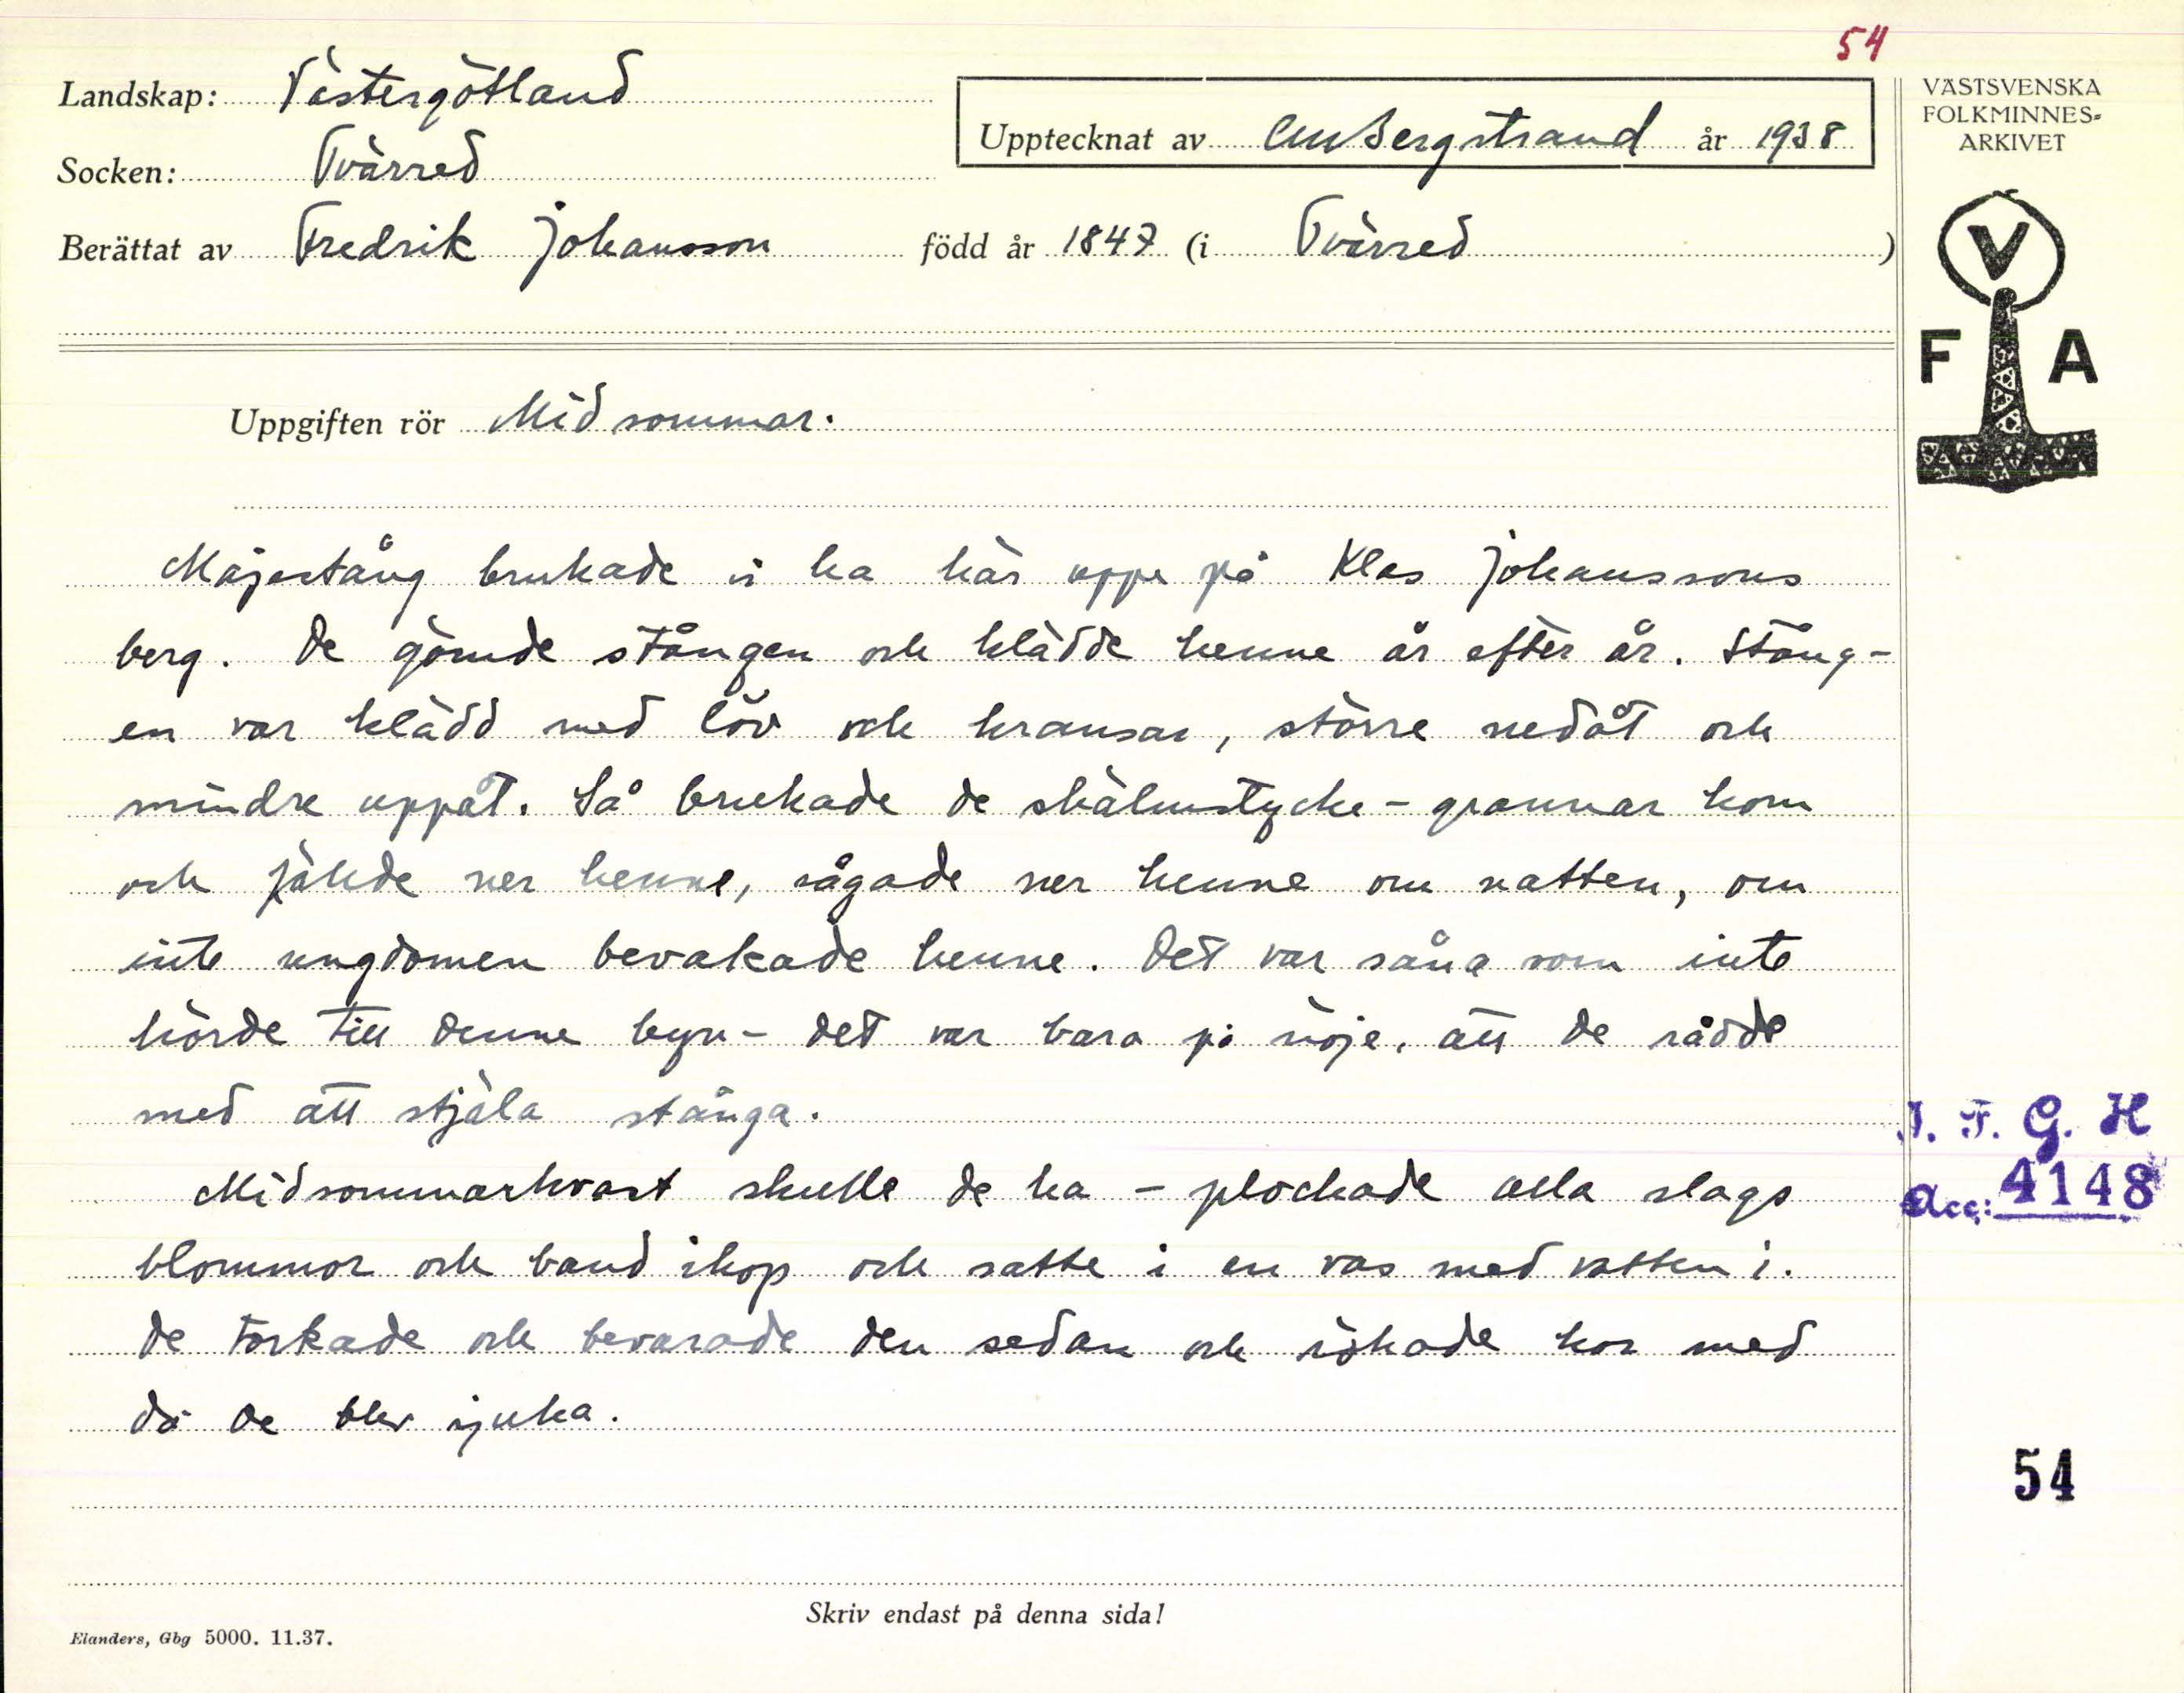 54
Landskap: Västergötland
Upptecknat av CMBergstrand år 1938
VÄSTSVENSKA
FOLKMINNES-
ARKIVET
Socken: Tvärred
Berättat av Fredrik Johansson född år 1847 (i Tvärred )
V
F A
Uppgiften rör Midsommar.
Majestång brukade vi ha här uppe på Klas Johanssons
berg. De gömde stången och klädde henne år efter år. Stång-
en var klädd med löv och kransar, större nedåt och
mindre uppåt. Så brukade de skälmstycke - grannar kom
och fällde ner henne, sågade ner henne om natten, om
inte ungdomen bevakade henne. Det var såna som inte
hörde till denne byn - det var bara på nöje, att de rådde
med att stjäla stånga.
Midsommarkvast skulle de ha - plockade alla slags
blommor och band ihop och satte i en vas med vatten i.
De torkade och bevarade den sedan och rökade kor med
då de blev sjuka.
I. F. G. H
Acc: 4148
54
Skriv endast på denna sida!
Elanders, Gbg 5000. 11.37.